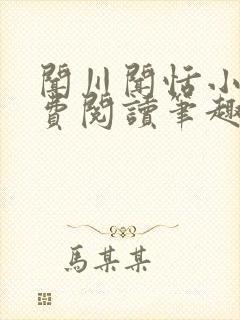 聞川聞恬小
費閱讀筆趣
馬某某